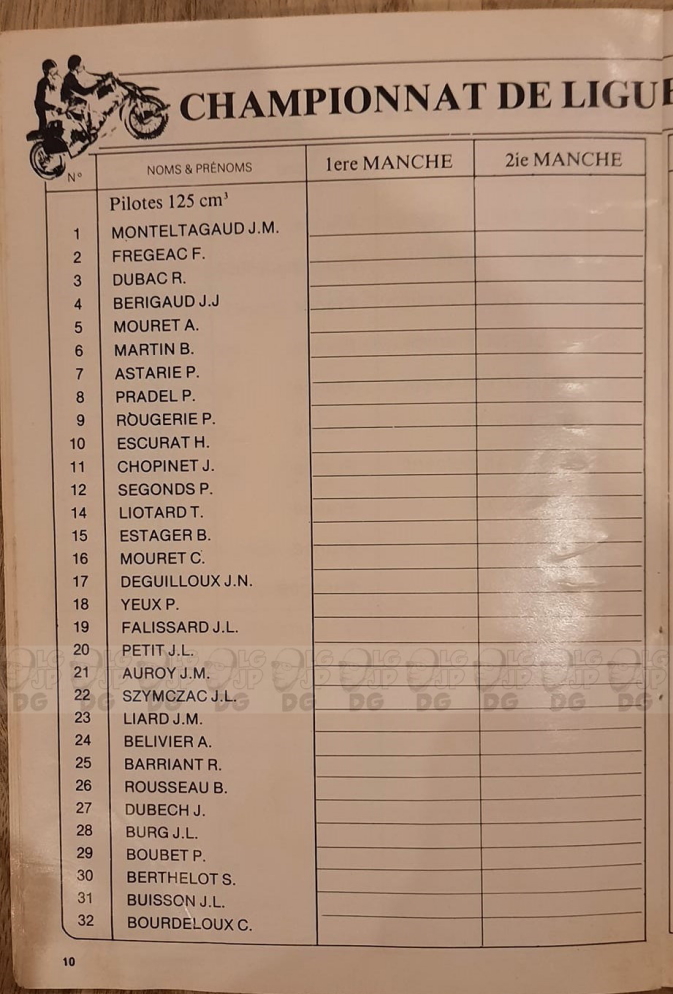 CHAMPIONNAT DE LIGUE
N° NOMS & PRÉNOMS 1ere MANCHE 2ie MANCHE
Pilotes 125 cm³
1 MONTELTAGAUD J.M.
2 FREGEAC F.
3 DUBAC R.
4 BERIGAUD J.J
5 MOURET A.
6 MARTIN B.
7 ASTARIE P.
8 PRADEL P.
9 ROUGERIE P.
10 ESCURAT H.
11 CHOPINET J.
12 SEGONDS P.
14 LIOTARD T.
15 ESTAGER B.
16 MOURET C.
17 DEGUILLOUX J.N.
18 YEUX P.
19 FALISSARD J.L.
20 PETIT J.L.
21 AUROY J.M.
22 SZYMCZAC J.L.
23 LIARD J.M.
24 BELIVIER A.
25 BARRIANT R.
26 ROUSSEAU B.
27 DUBECH J.
28 BURG J.L.
29 BOUBET P.
30 BERTHELOT S.
31 BUISSON J.L.
32 BOURDELOUX C.
10